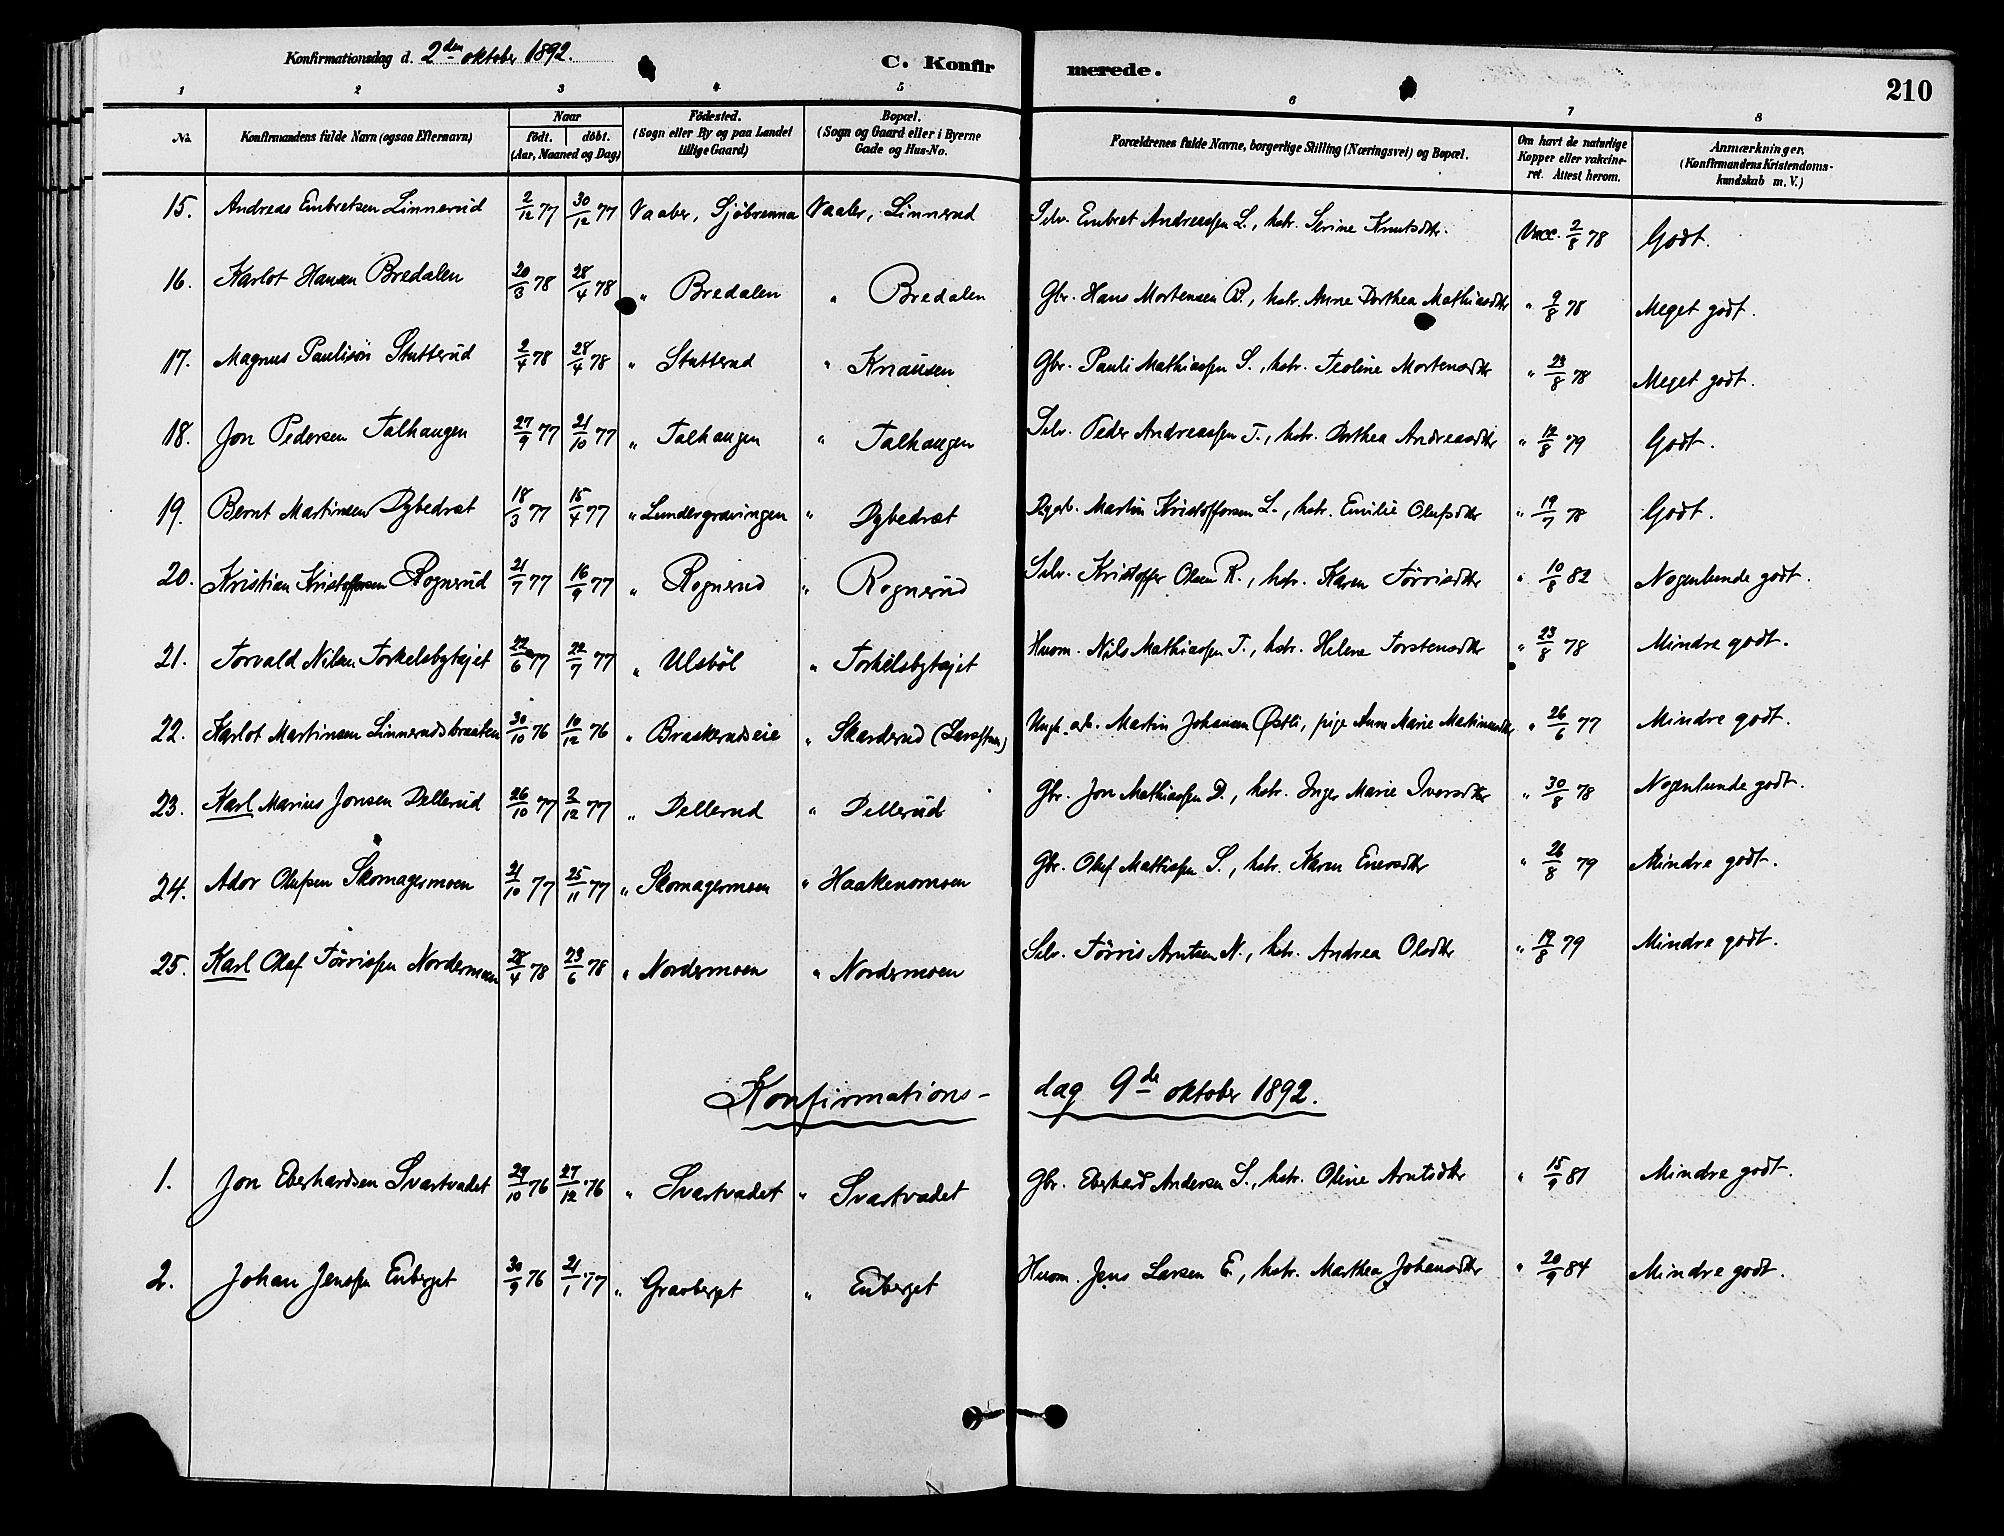 Konfirmationsdag d. 2den oktober 1892.
C. Konfirmerede.
210
1 2 3 4 5 6 7 8
No. Konfirmandens fulde Navn (ogsaa Efternavn) Naar født. døbt. (Aar, Maaned og Dag) Fødested. (Sogn eller By og paa Landet tillige Gaard) Bopæl. (Sogn og Gaard eller i Byerne Gade og Hus-No. Forældrenes fulde Navne, borgerlige Stilling (Næringsvei) og Bopæl. Om havt de naturlige Kopper eller vakcineret. Attest herom. Anmærkninger. (Konfirmandens Kristendomskundskab m. V.)
15. Andreas Embretsen Linnerud 2/12 77 30/12 77 Vaaler, Sjöbrenna Vaaler, Linnerud Selv. Embret Andreassen L., hstr. Serine Knutsdtr. Vacc. 2/8 78 Godt.
16. Karlot Hansen Bredalen 20/3 78 28/4 78 " Bredalen " Bredalen Gbr. Hans Mortensen B., hstr. Anne Dorthea Mathiasdtr " 9/8 78 Meget godt.
17. Magnus Paulisön Stutterud 2/4 78 28/4 78 " Stutterud " Knausen Gbr. Pauli Mathiassen S., hstr. Teoline Mortensdtr " 23/8 78 Meget godt.
18. Jon Pedersen Falhaugen 27/9 77 21/10 77 " Falhaugen " Falhaugen Selv. Peder Andreassen F., hstr. Dorthea Andreasdtr " 12/8 79 Godt.
19. Bernt Martinsen Dybedræt 18/3 77 15/4 77 " Lundergravingen " Dybedræt Martin Kristoffersen L., hstr. Emilie Olufsdtr " 19/7 78 Godt.
20. Kristian Kristoffersen Rognerud 21/7 77 16/9 77 " Rognerud " Rognerud Selv. Kristoffer Olsen R., hstr. Karen Törrisdtr " 10/8 82 Nogenlunde godt.
21. Torvald Nilsen Torkelsbytøjet 22/6 77 22/7 77 " Ulsböl " Torkelsbytøjet Husm. Nils Mathiassen T., hstr. Helene Torstensdtr " 23/8 78 Mindre godt.
22. Karlot Martinsen Linnerudsbraaten 30/10 76 10/12 76 " Braskerudseie " Skarderud Ungk. arb. Martin Johansen Østli, pige Anne Marie Martinusdtr " 26/6 77 Mindre godt.
23. Karl Marius Jonsen Dellerud 26/10 77 2/12 77 " Dellerud " Dellerud Gbr. Jon Mathiassen D., hstr. Inger Marie Iversdtr " 30/8 78 Nogenlunde godt.
24. Ador Olufsen Skomagermoen 21/10 77 25/11 77 " Skomagermoen " Haakenomoen Gbr. Oluf Mathiassen S., hstr. Karen Enersdtr " 26/8 79 Mindre godt.
25. Karl Olaf Törrissen Nordermoen 28/4 78 23/6 78 " Nordermoen " Nordermoen Selv. Törris Arntsen N., hstr. Andrea Olsdtr " 19/8 79 Mindre godt.
Konfirmations-dag 9de oktober 1892.
1. Jon Eberhardsen Svartvadet 29/10 76 27/12 76 " Svartvadet " Svartvadet Gbr. Eberhard Andersen S., hstr. Oline Arntsdtr " 15/9 81 Mindre godt.
2. Johan Jenssen Enberget 30/9 76 21/1 77 " Gravberget " Enberget Husm. Jens Larsen E., hstr. Marthea Johansdtr " 20/9 84 Mindre godt.